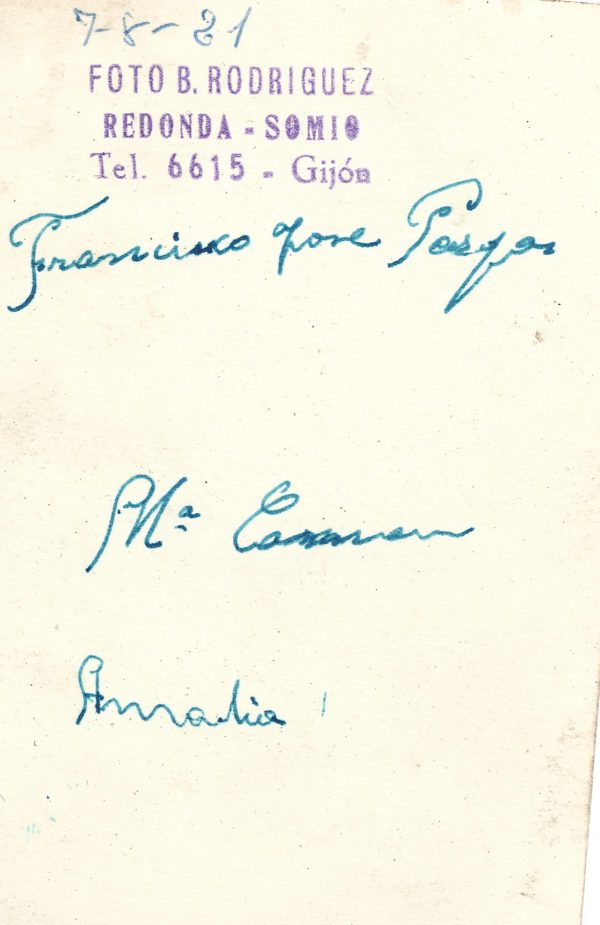 7-8-21
FOTO B. RODRIGUEZ
REDONDA - SOMIO
Tel. 6615 - Gijón
Francisko Jose
Mª Carmen
Amalia